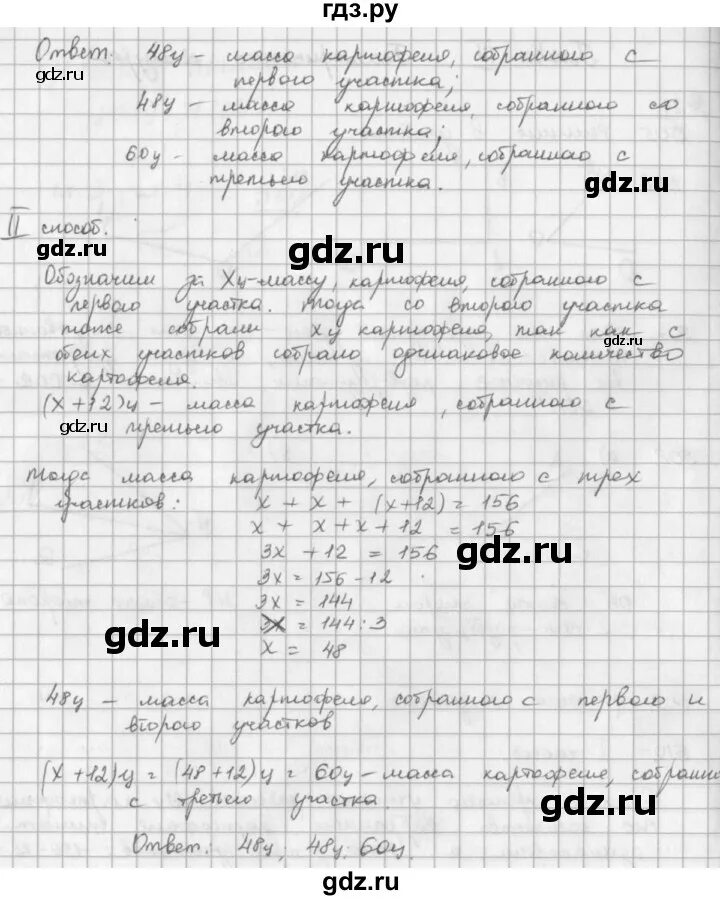 гдз.ру
Ответ: 48ц – масса картофеля, собранного с
gdz.ru
первого участка;
48ц – масса картофеля, собранного со
второго участка;
60ц – масса картофеля, собранного с
третьего участка.
gdz.ru
II способ.
gdz.ru
gdz.ru
Обозначим за Xц – массу, картофеля, собранного с
первого участка. Тогда со второго участка
тоже собрали xц картофеля, так как с
обеих участков собрано одинаковое количество
картофеля.
(x + 12)ц – масса картофеля, собранного с
gdz.ru
третьего участка.
Тогда масса картофеля, собранного с трех
участков: x + x + (x+12) = 156
x + x + x + 12 = 156
3x + 12 = 156
gdz.ru
3x = 156 - 12
3x = 144
3x = 144 : 3
gdz.ru
x = 48
48ц – масса картофеля, собранного с первого и
второго участков
(x + 12)ц = (48 + 12)ц = 60ц – масса картофеля, собранно
gdz.ru
с третьего участка
Ответ: 48ц; 48ц; 60ц.
gdz.ru
gdz.ru